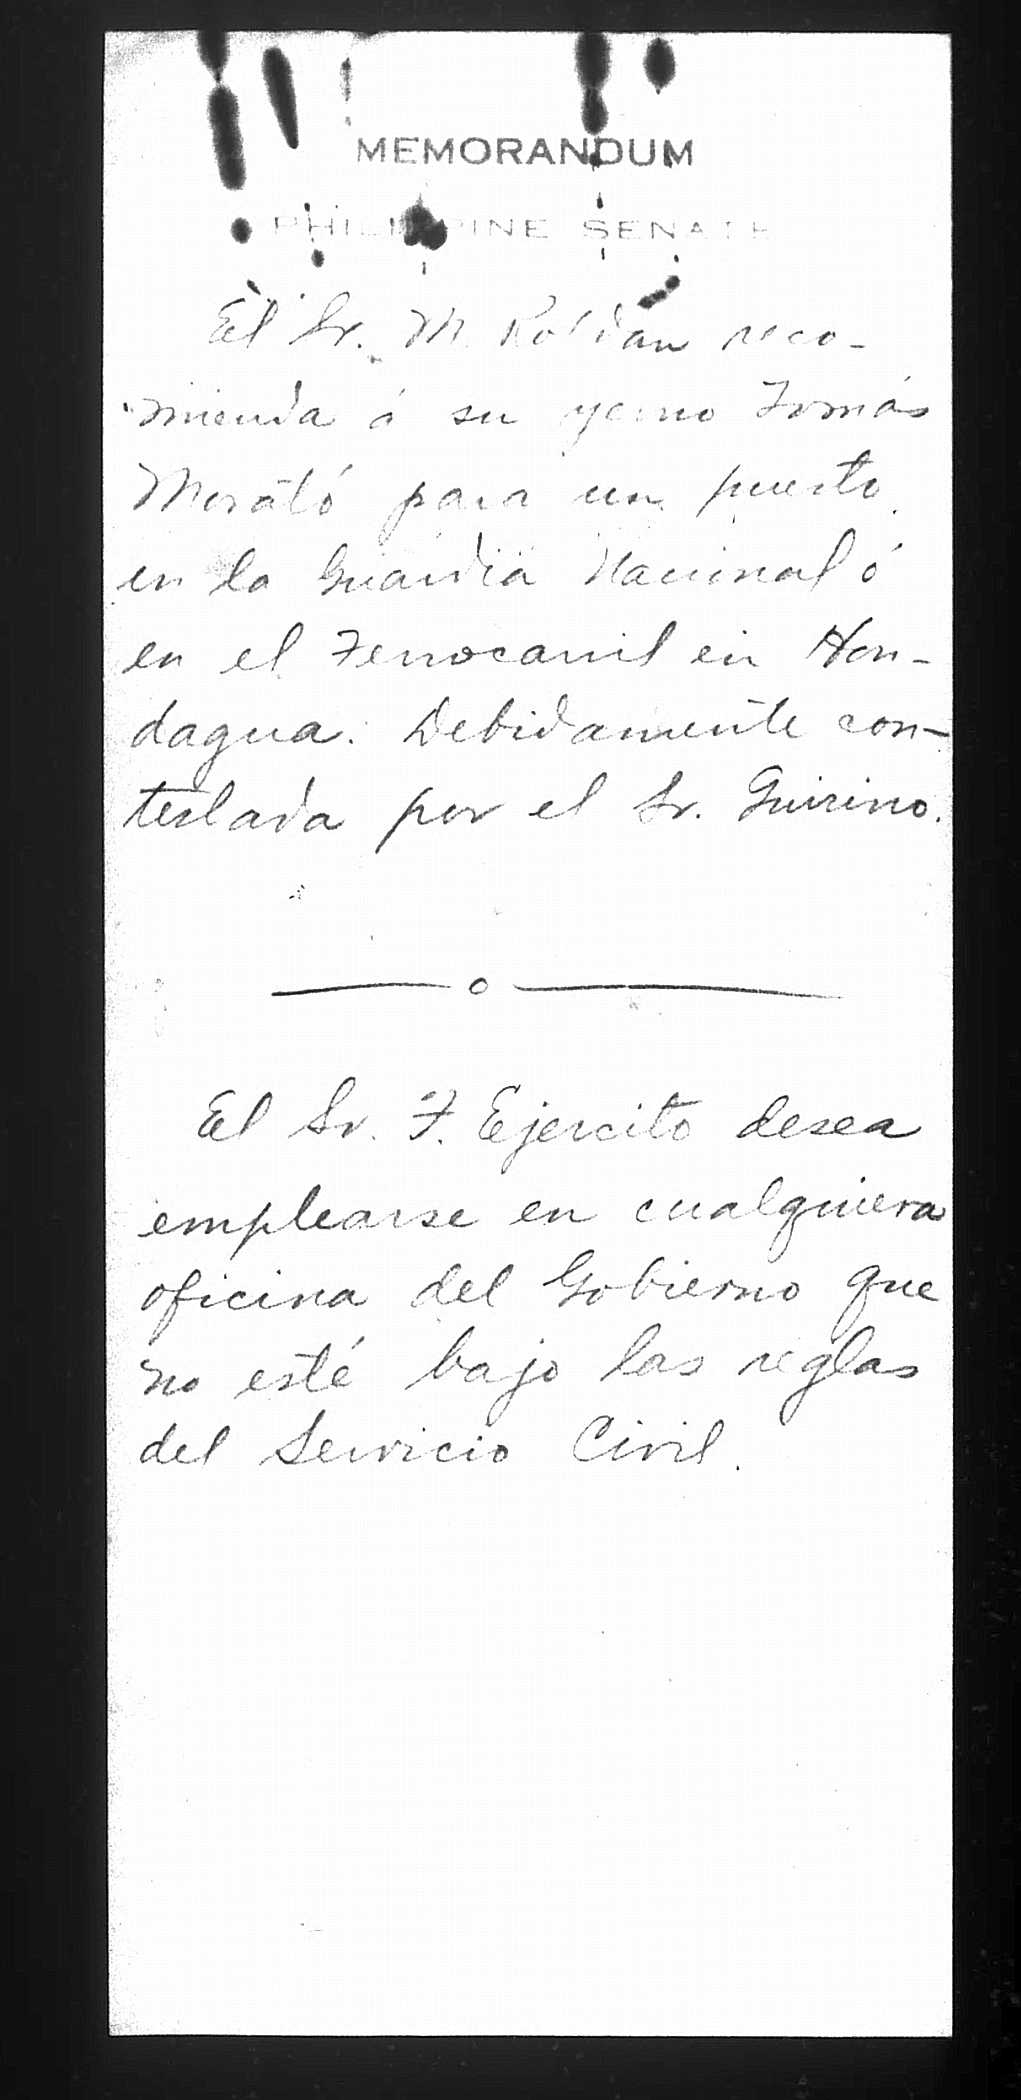 MEMORANDUM
PHILIPPINE SENATE
El Sr. M. Roldan reco-
mienda á su yerno Tomás
Morató para un puesto
en la Guardia Nacional ó
en el Ferrocarril en Hon-
dagua. Debidamente con-
testada por el Sr. Guirino.
El Sr. F. Ejercito desea
emplearse en cualquiera
oficina del Gobierno que
no esté bajo las reglas
del Servicio Civil.